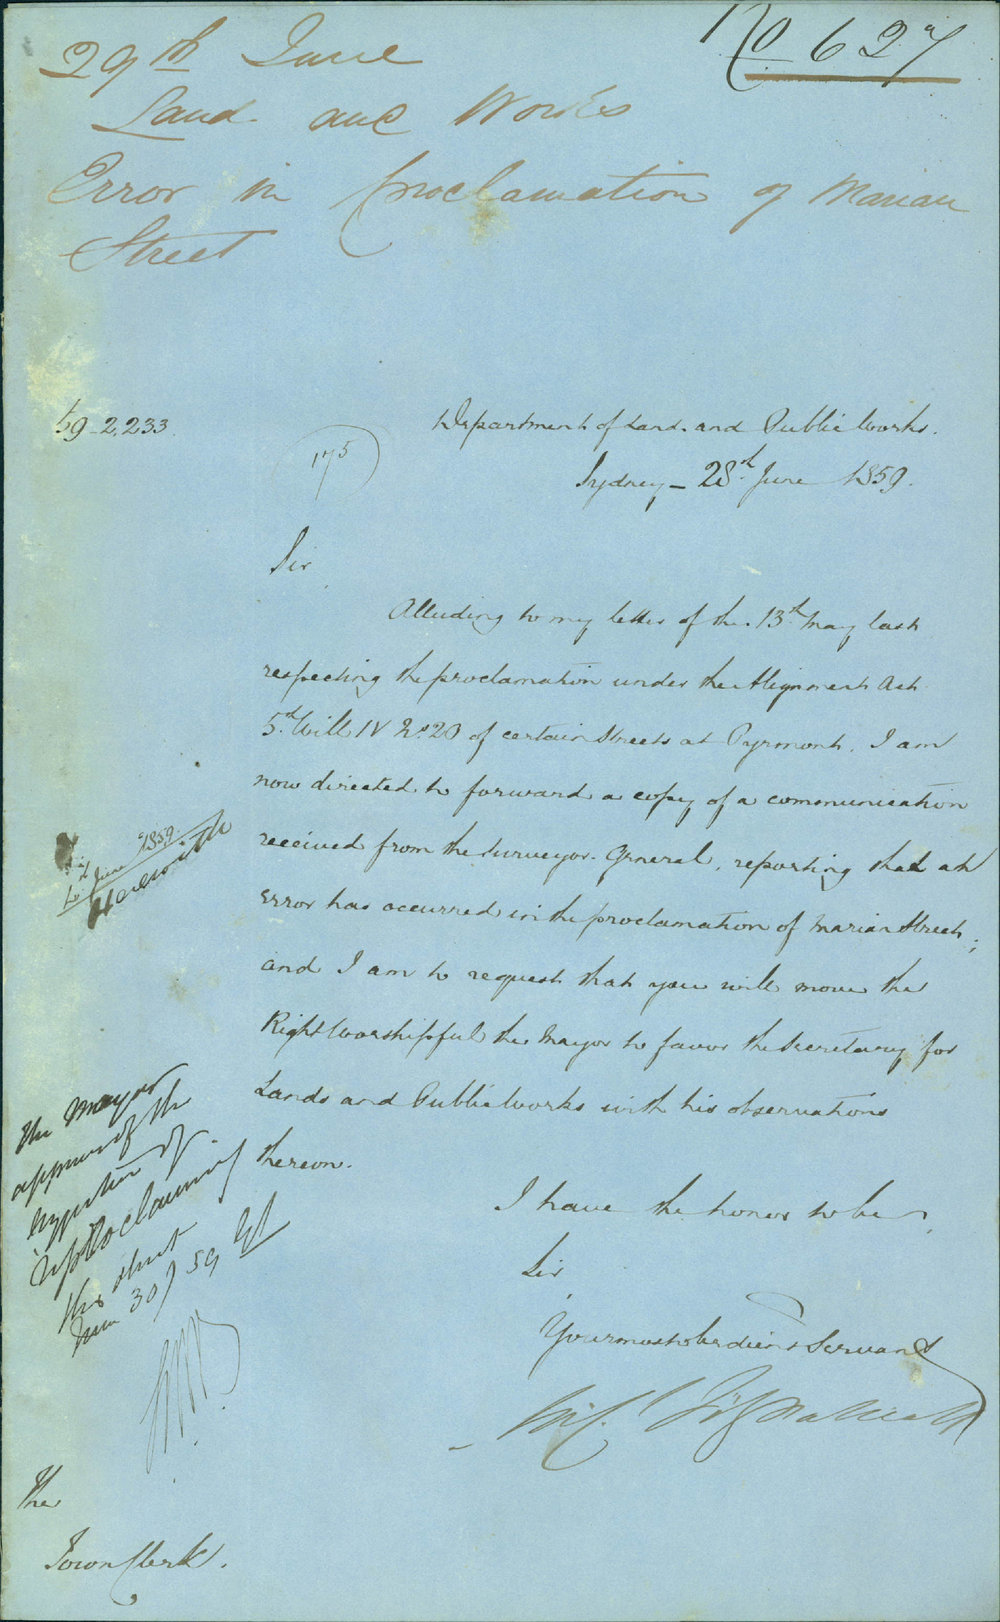 No 627
29th June
Land and Works
Error in Proclamation of Marian
Street
59-2,233
175
Department of Land and Public Works.
Sydney - 28th June 1859.
Sir
Alluding to my letter of the 13th May last
respecting the proclamation under the Alignment Act
5th Will IV No 20 of certain Streets at Pyrmont, I am
now directed to forward a copy of a communication
received from the Surveyor General, reporting that an
Error has occurred in the proclamation of Marian Street;
and I am to request that you will move the
Right Worshipful the Mayor to favor the Secretary for
Lands and Public Works with his observations
thereon.
I have the honor to be,
Sir
Your most obedient Servant
June 1859
Herewith
The Mayor
approves of the
of
reproclaiming
this street
June 30/59
The
Town Clerk.